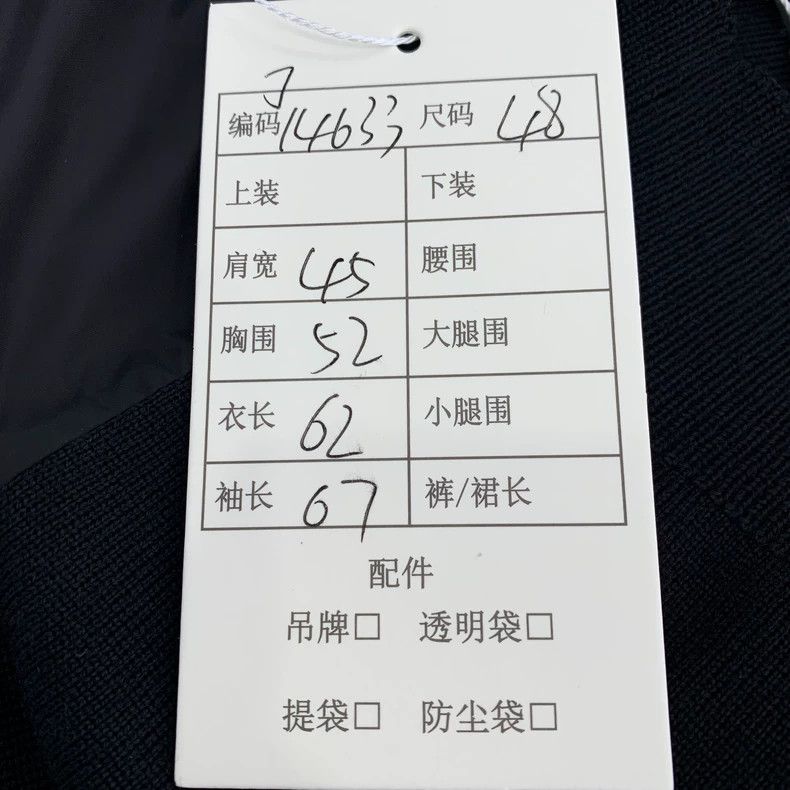 J
编码 14633 尺码 48
上装 下装
肩宽 45 腰围
胸围 52 大腿围
衣长 62 小腿围
袖长 67 裤/裙长
配件
吊牌□ 透明袋□
提袋□ 防尘袋□